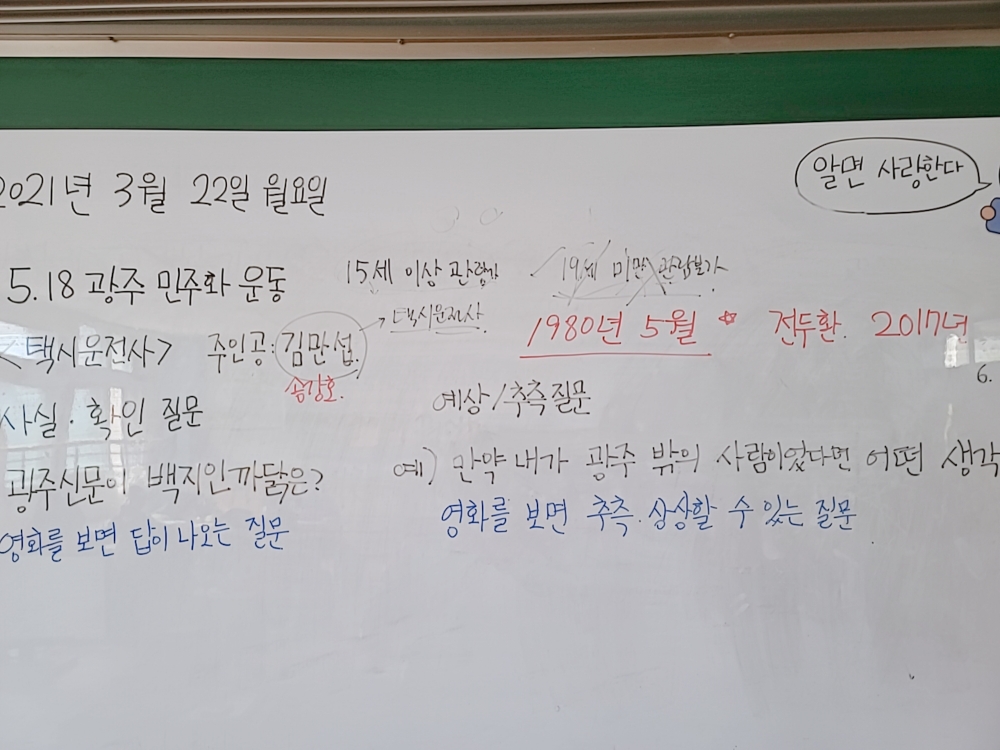 2021년 3월 22일 월요일
알면 사랑한다
5.18 광주 민주화 운동
15세 이상 관람가
19세 미만 관람불가
<택시운전사> 주인공: 김만섭
택시운전사
송강호.
1980년 5월 전두환. 2017년
6.
사실·확인 질문
예상/추측질문
광주신문이 백지인까닭은?
예) 만약 내가 광주 밖의 사람이었다면 어떤 생각
영화를 보면 답이 나오는 질문
영화를 보면 추측·상상할 수 있는 질문